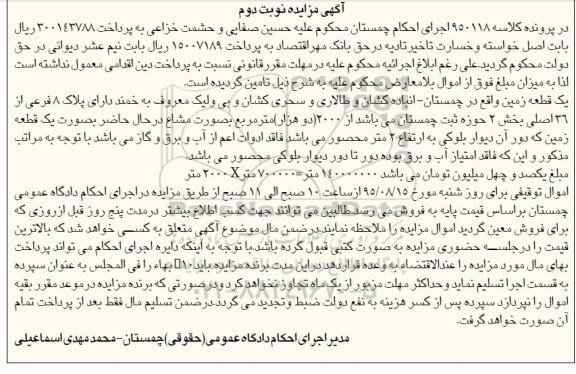 آگهی مزایده نوبت دوم
در پرونده کلاسه ۹۵۰۱۱۸ اجرای احکام چمستان محکوم علیه حسین صفایی و حشمت خزاعی به پرداخت ۳۰۰۱۴۳۷۸۸ ریال
بابت اصل خواسته و خسارت تاخیر تادیه در حق بانک مهر اقتصاد به پرداخت ۱۵۰۰۷۱۸۹ ریال بابت نیم عشر دیوانی در حق
دولت محکوم گردید.علی رغم ابلاغ اجرائیه محکوم علیه در مهلت مقرر قانونی نسبت به پرداخت دین اقدامی معمول نداشته است
لذا به میزان مبلغ فوق از اموال بلامعارض محکوم علیه به شرح ذیل تامین گردیده است.
یک قطعه زمین واقع در چمستان-انباده کشان و طالاری و سحری کشان و بی ولیک معروف به خمند دارای پلاک ۸ فرعی از
۳۶ اصلی بخش ۲ حوزه ثبت چمستان می باشد از ۲۰۰۰(دو هزار)متر مربع بصورت مشاع در حال حاضر بصورت یک قطعه
زمین که دور آن دیوار بلوکی به ارتفاع ۲ متر محصور می باشد فاقد ادوات اعم از آب و برق و گاز می باشد با توجه به مراتب
مذکور و این که فاقد امتیاز آب و برق بوده دور تا دور دیوار بلوکی محصور می باشد.
مبلغ یکصد و چهل میلیون تومان می باشد ۱۴۰۰۰۰۰۰۰۰ متر=۷۰۰۰۰۰ متر X ۲۰۰۰ متر
اموال توقیفی برای روز شنبه مورخ ۹۵/۰۸/۱۵ از ساعت ۱۰ صبح الی ۱۱ صبح از طریق مزایده در اجرای احکام دادگاه عمومی
چمستان بر اساس قیمت پایه به فروش می رسد.طالبین می توانند جهت کسب اطلاع بیشتر در مدت پنج روز قبل از روزی که
برای فروش معین گردید اموال مزایده را ملاحظه نمایند.در ضمن مال موضوع آگهی متعلق به کسی خواهد شد که بالاترین
قیمت را در جلسه حضوری مزایده به صورت کتبی قبول کرده باشد.با توجه به اینکه دایره اجرای احکام می تواند پرداخت
بهای مال مورد مزایده را عندالاقتضاء به وعده قرار دهد در این صورت برنده مزایده باید ۱۰٪ بهاء را فی المجلس به عنوان سپرده
به قسمت اجرا تسلیم نماید و حداکثر مهلت مزبور از یک ماه تجاوز نخواهد کرد و در صورتی که برنده مزایده در موعد مقرر بقیه
اموال را نپردازد سپرده پس از کسر هزینه به نفع دولت ضبط و تجدید می گردد.در ضمن تسلیم مال فقط بعد از پرداخت تمام
آن صورت خواهد گرفت.
مدیر اجرای احکام دادگاه عمومی(حقوقی)چمستان-محمد مهدی اسماعیلی
۰۲۱-۸۸۳۴۹۶۷۰-۵